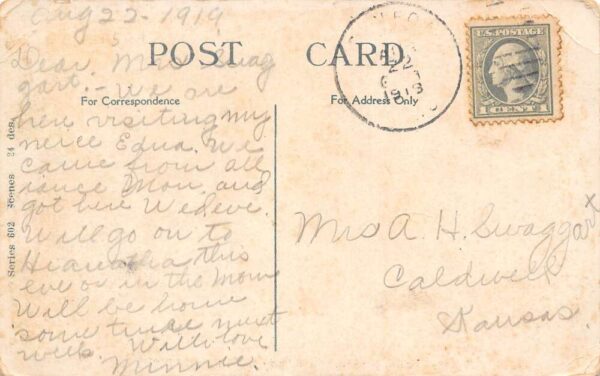 Aug 22 - 1919
POST CARD
For Correspondence
For Address Only
Dear Mrs Swag
gart. - We are
here visiting my
niece Edna. We
came from all
iance Mon. and
got here Wed eve.
Will go on to
Hiawatha this
eve or in the Morn
Will be home
some time next
week. With love
Minnie.
Series 602 24 des.
22
1919
U.S. POSTAGE
CENT
Mrs A. H. Swaggart
Caldwell
Kansas.